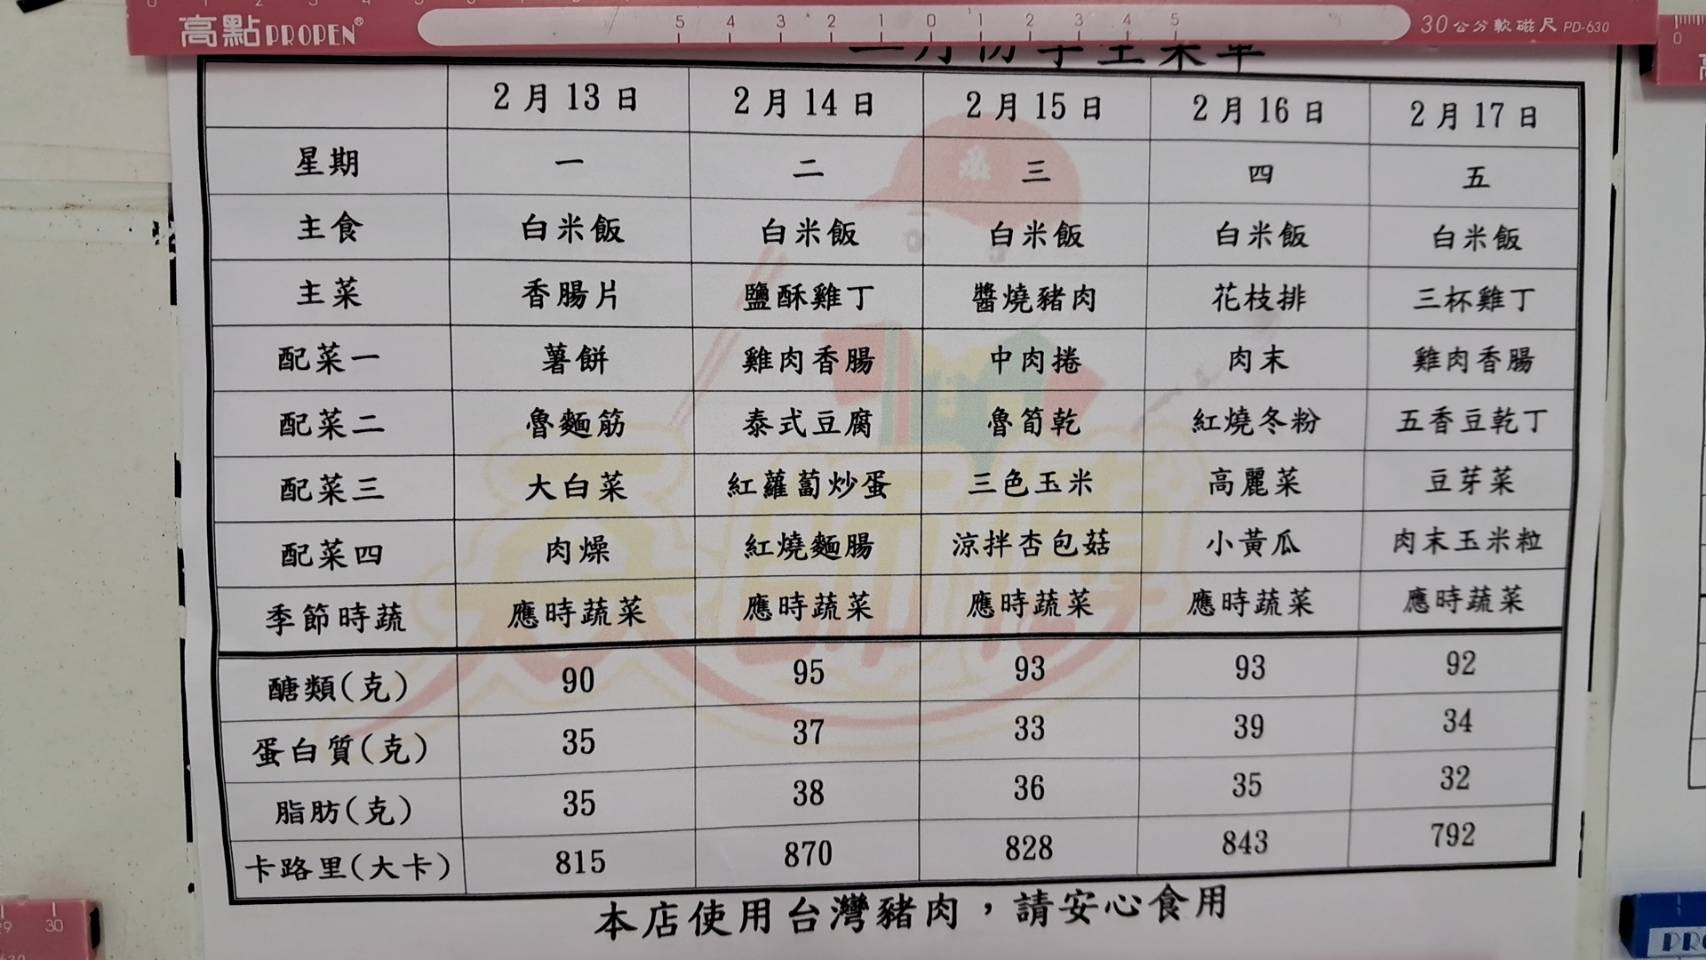 高點PROPEN®
5 4 3 2 1 0 1 2 3 4 5
30公分軟磁尺 PD-630
二月份學生菜單
2月13日 2月14日 2月15日 2月16日 2月17日
星期 一 二 三 四 五
主食 白米飯 白米飯 白米飯 白米飯 白米飯
主菜 香腸片 鹽酥雞丁 醬燒豬肉 花枝排 三杯雞丁
配菜一 薯餅 雞肉香腸 中肉捲 肉末 雞肉香腸
配菜二 魯麵筋 泰式豆腐 魯筍乾 紅燒冬粉 五香豆乾丁
配菜三 大白菜 紅蘿蔔炒蛋 三色玉米 高麗菜 豆芽菜
配菜四 肉燥 紅燒麵腸 涼拌杏包菇 小黃瓜 肉末玉米粒
季節時蔬 應時蔬菜 應時蔬菜 應時蔬菜 應時蔬菜 應時蔬菜
醣類(克) 90 95 93 93 92
蛋白質(克) 35 37 33 39 34
脂肪(克) 35 38 36 35 32
卡路里(大卡) 815 870 828 843 792
本店使用台灣豬肉，請安心食用
30